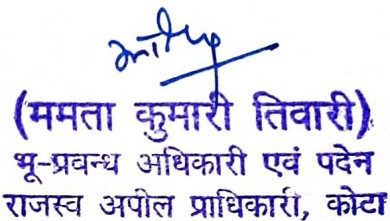 (ममता कुमारी तिवारी)
भू-प्रवन्ध अधिकारी एवं पदेन
राजस्व अपील प्राधिकारी, कोटा